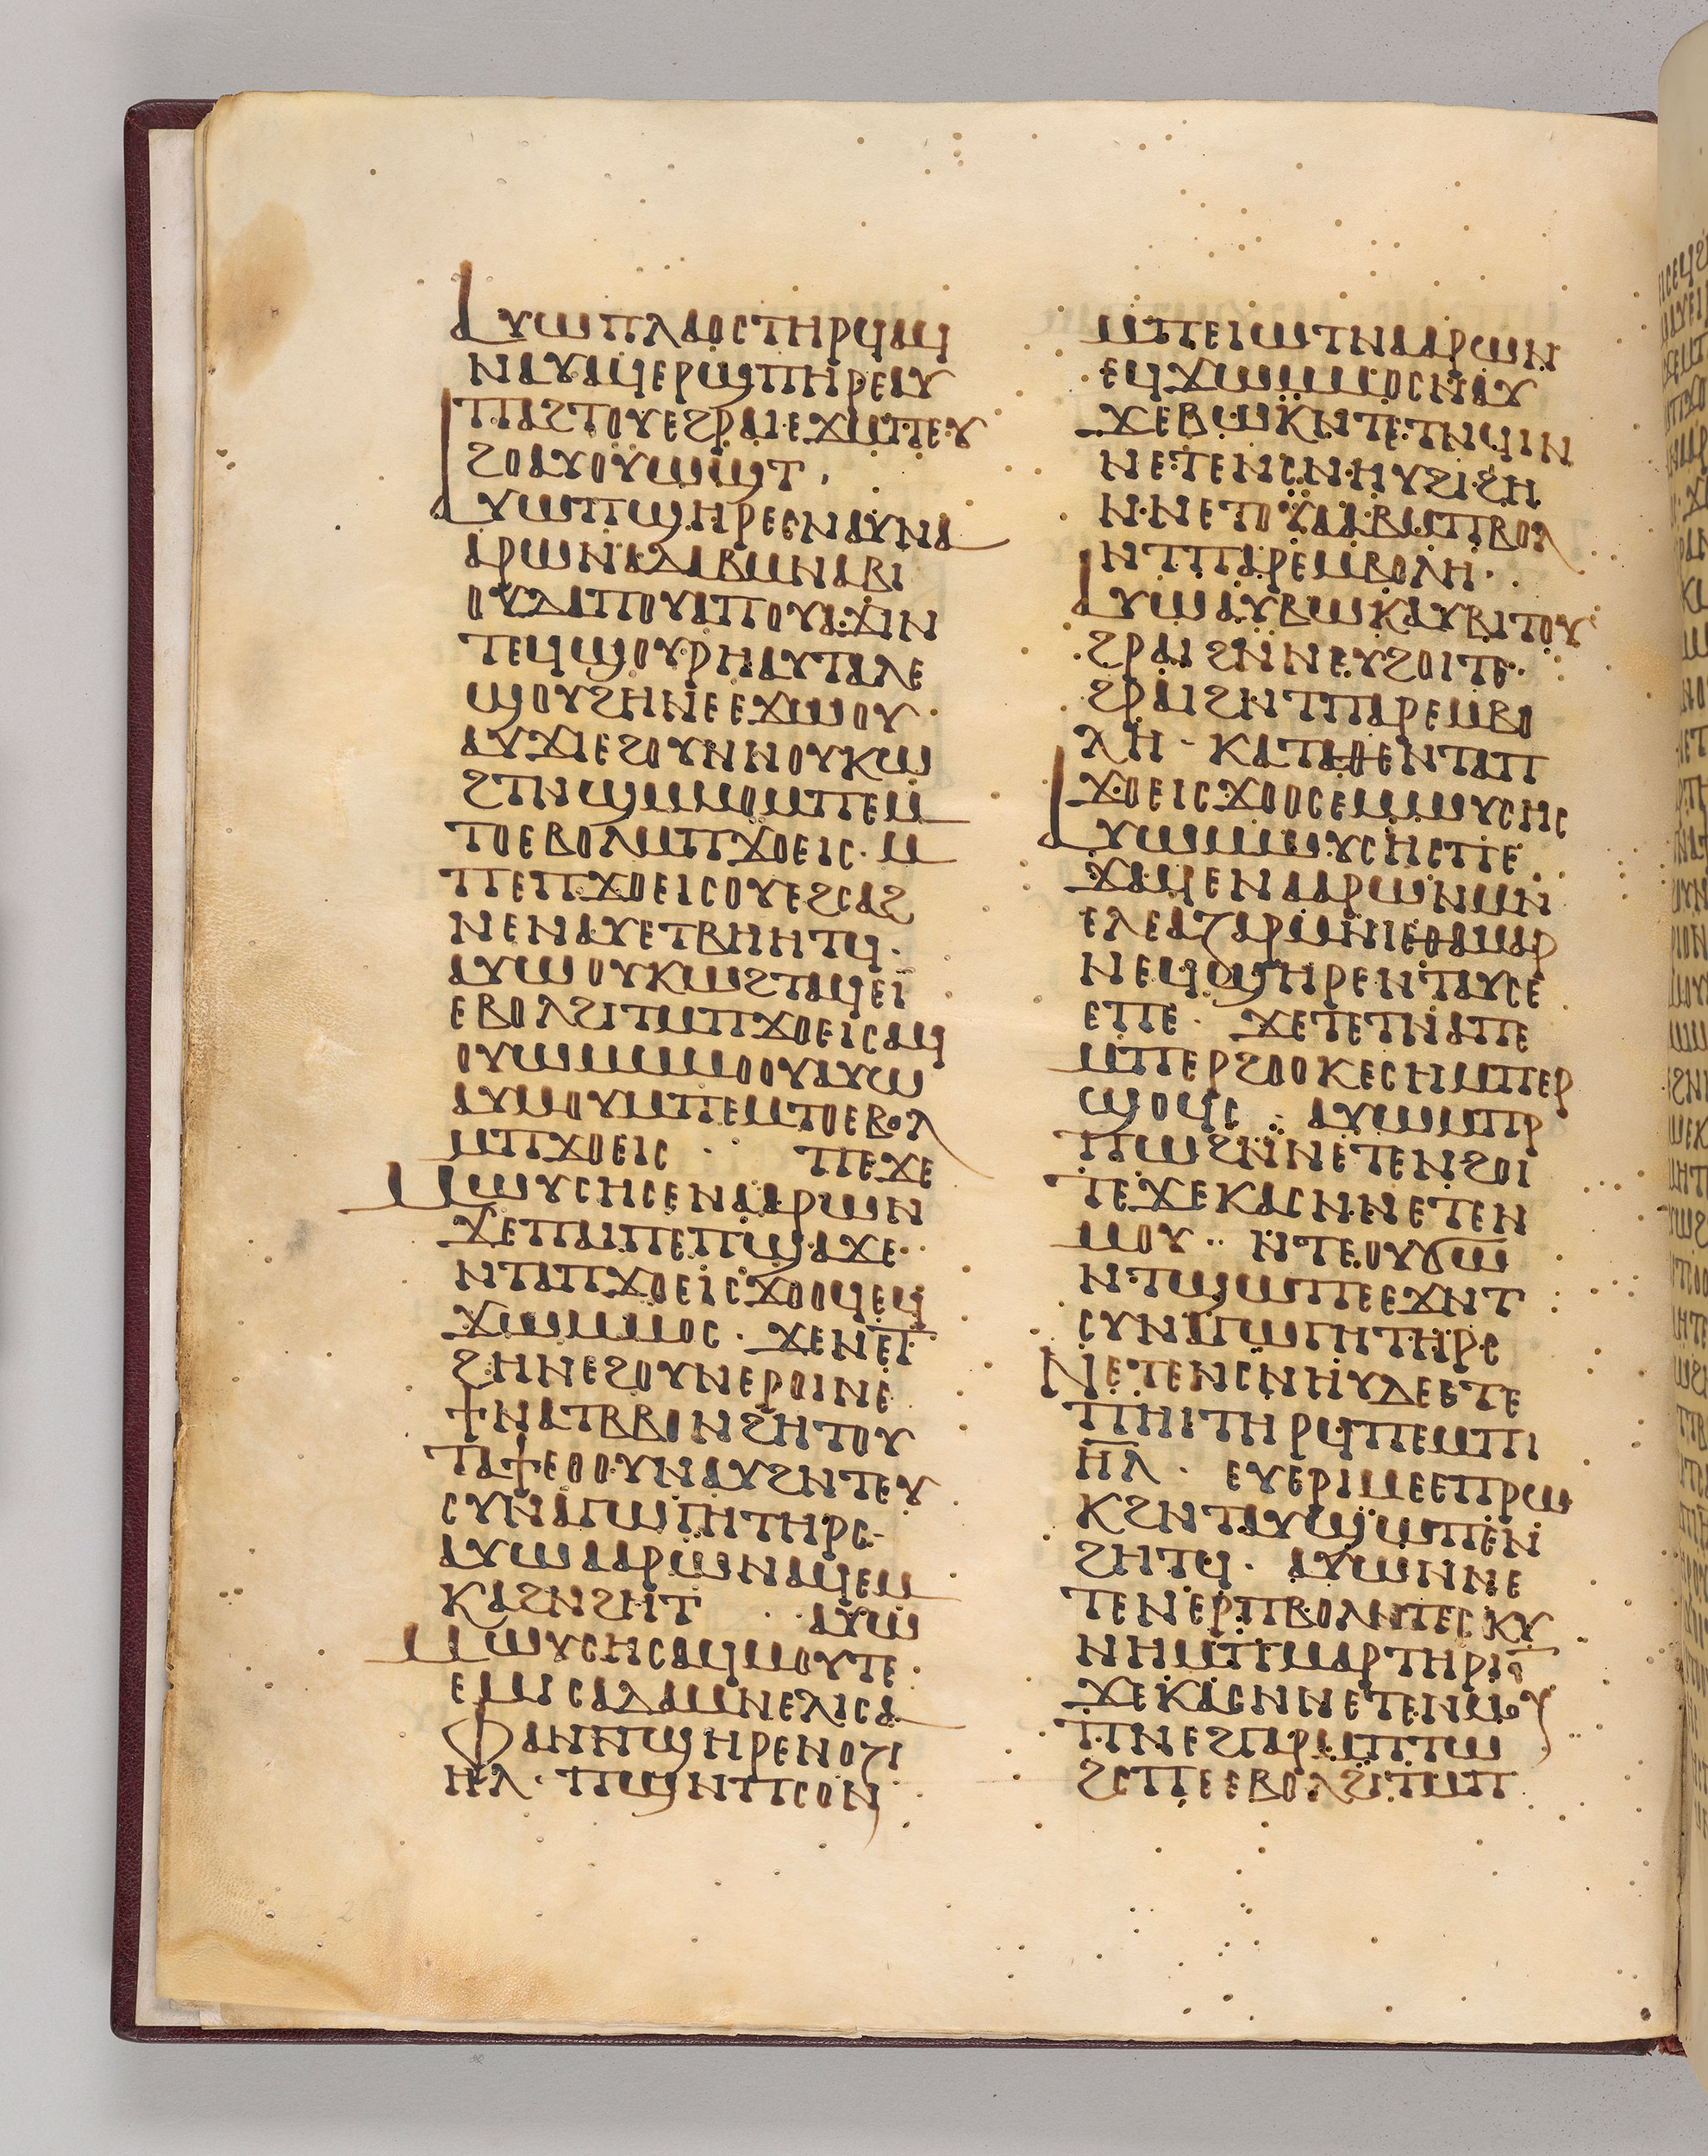 ⲀⲨⲰⲠⲖⲀⲞⲤⲦⲎⲢϤⲀϤ
ⲚⲀⲨⲀϤⲈⲢϢⲠⲎⲢⲈⲀⲨ
ⲠⲀϨⲦⲞⲨⲈϨⲢⲀⲒⲈϪⲘⲠⲈⲨ
ϨⲞⲀⲨⲞⲨⲰϢⲦ
ⲀⲨⲰⲠϢⲎⲢⲈⲤⲚⲀⲨⲚⲀ
ⲀⲢⲰⲚⲀⲆⲀⲂⲘⲚⲀⲂⲒ
ⲞⲨⲆⲀⲠⲞⲨⲀⲠⲞⲨⲀϪⲒⲚ
ⲦⲈϤϢⲞⲨⲢⲎⲀⲨⲦⲀⲖⲈ
ϢⲞⲨϨⲎⲚⲈⲈϪⲰⲞⲨ
ⲀⲨϪⲒⲈϨⲞⲨⲚⲚⲞⲨⲔⲰ
ϨⲦⲚϢⲘⲘⲞⲘⲠⲈⲘ
ⲦⲞⲈⲂⲞⲖⲘⲠϪⲞⲈⲒⲤ· Ⲙ
ⲠⲈⲠϪⲞⲈⲒⲤⲞⲨⲈϨⲤⲀϨ
ⲚⲈⲚⲀⲨⲈⲦⲂⲎⲎⲦϤ·
ⲀⲨⲰⲞⲨⲔⲰϨⲦⲀϤⲈⲒ
ⲈⲂⲞⲖϨⲒⲦⲘⲠϪⲞⲈⲒⲤⲀϤ
ⲞⲨⲰⲘⲘⲘⲞⲞⲨⲀⲨⲰ
ⲀⲨⲘⲞⲨⲘⲠⲈⲘⲦⲞⲈⲂⲞⲖ
ⲘⲠϪⲞⲈⲒⲤ · ⲠⲈϪⲈ
ⲘⲰⲨⲤⲎⲤⲈⲚⲀⲀⲢⲰⲚ
ϪⲈⲠⲀⲒⲠⲈⲠϢⲀϪⲈ·
ⲚⲦⲀⲠϪⲞⲈⲒⲤϪⲞⲞϤⲈϤ
ϪⲰⲘⲘⲞⲤ· ϪⲈⲚⲈⲦ
ϨⲎⲚⲈϨⲞⲨⲚⲈⲢⲞⲒⲚⲈ
ϮⲚⲀⲦⲂⲂⲞⲚϨⲎⲦⲞⲨ
ⲦⲀϮⲈⲞⲞⲨⲚⲀⲨϨⲚⲦⲈⲨ
ⲤⲨⲚⲀⲅⲰⲅⲎⲦⲎⲢⲤ·
ⲀⲨⲰⲀⲀⲢⲰⲚⲀϤⲈⲘ
ⲔⲀϨⲚϨⲎⲦ · ⲀⲨⲰ
ⲘⲰⲨⲤⲎⲤⲀϤⲘⲞⲨⲦⲈ·
ⲈⲘⲒⲤⲀⲆⲀⲘⲚⲈⲖⲒⲤⲀ
ⲪⲀⲚⲚϢⲎⲢⲈⲚⲞⲌⲒ
ⲎⲖ· ⲠϢⲚⲠⲤⲞⲚ
ⲘⲠⲈⲒⲰⲦⲚⲀⲀⲢⲰⲚ
ⲈϤϪⲰⲘⲘⲞⲤⲚⲀⲨ
ϪⲈⲂⲰⲔⲚⲦⲈⲦⲚϤⲒⲚ
ⲚⲈⲦⲈⲚⲤⲚⲎⲨϨⲒϨⲎ
ⲚⲚⲈⲦⲞⲨⲀⲀⲂⲘⲠⲂⲞⲖ
ⲚⲦⲠⲀⲢⲈⲘⲂⲞⲖⲎ·
ⲀⲨⲰⲀⲨⲂⲰⲔⲀⲨⲂⲒⲦⲞⲨ
ϨⲢⲀⲒϨⲚⲚⲈⲨϨⲞⲒⲦⲈ·
ϨⲢⲀⲒϨⲚⲦⲠⲀⲢⲈⲘⲂⲞ
ⲖⲎ· ⲔⲀⲦⲀⲐⲈⲚⲦⲀⲠ
ϪⲞⲈⲒⲤϪⲞⲞⲤⲈⲘⲘⲰⲨⲤⲎⲤ
ⲀⲨⲰⲘⲰⲨⲤⲎⲤⲠⲈ
ϪⲀϤⲈⲚⲀⲀⲢⲰⲚⲘⲚ
ⲈⲖⲈⲀⲌⲀⲢⲘⲚⲒⲈⲐⲀⲘⲀⲢ
ⲚⲈϤϢⲎⲢⲈⲚⲦⲀⲨⲤⲈ
ⲈⲠⲈ· ϪⲈⲦⲈⲦⲚⲀⲠⲈ
ⲘⲠⲈⲢϨⲞⲞⲔⲈⲤⲎⲘⲠⲈⲢ
ϢⲞϤⲤ : ⲀⲨⲰⲘⲠⲢ
ⲠⲰϨⲚⲚⲈⲦⲈⲚϨⲞⲒ
ⲦⲈϪⲈⲔⲀⲤⲚⲚⲈⲦⲈⲚ
ⲘⲞⲨ·· ⲚⲦⲈⲞⲨϬⲰ
ⲚⲦϢⲰⲠⲈⲈϪⲚⲦ
ⲤⲨⲚⲀⲅⲰⲅⲎⲦⲎⲢⲤ
ⲚⲈⲦⲈⲚⲤⲚⲎⲨⲆⲈⲈⲦⲈ
ⲠⲎⲒⲦⲎⲢϤⲠⲈⲘⲠⲒ
ⲎⲖ· ⲈⲨⲈⲢⲒⲘⲈⲈⲠⲢⲰ
ⲔϨⲚⲦⲀⲨϢⲰⲠⲈⲚ
ϨⲎⲦϤ· ⲀⲨⲰⲚⲚⲈ
ⲦⲈⲚⲈⲢⲠⲂⲞⲖⲚⲦⲈⲤⲔⲨ
ⲚⲎⲘⲠⲘⲀⲢⲦⲎⲢⲒⲞ̅
ϪⲈⲔⲀⲤⲚⲚⲈⲦⲈⲚⲘⲞⲨ
ⲠⲚⲈϨⲅⲀⲢⲘⲠⲦⲰ
ϨⲤⲠⲈⲈⲂⲞⲖϨⲒⲦⲘⲠ